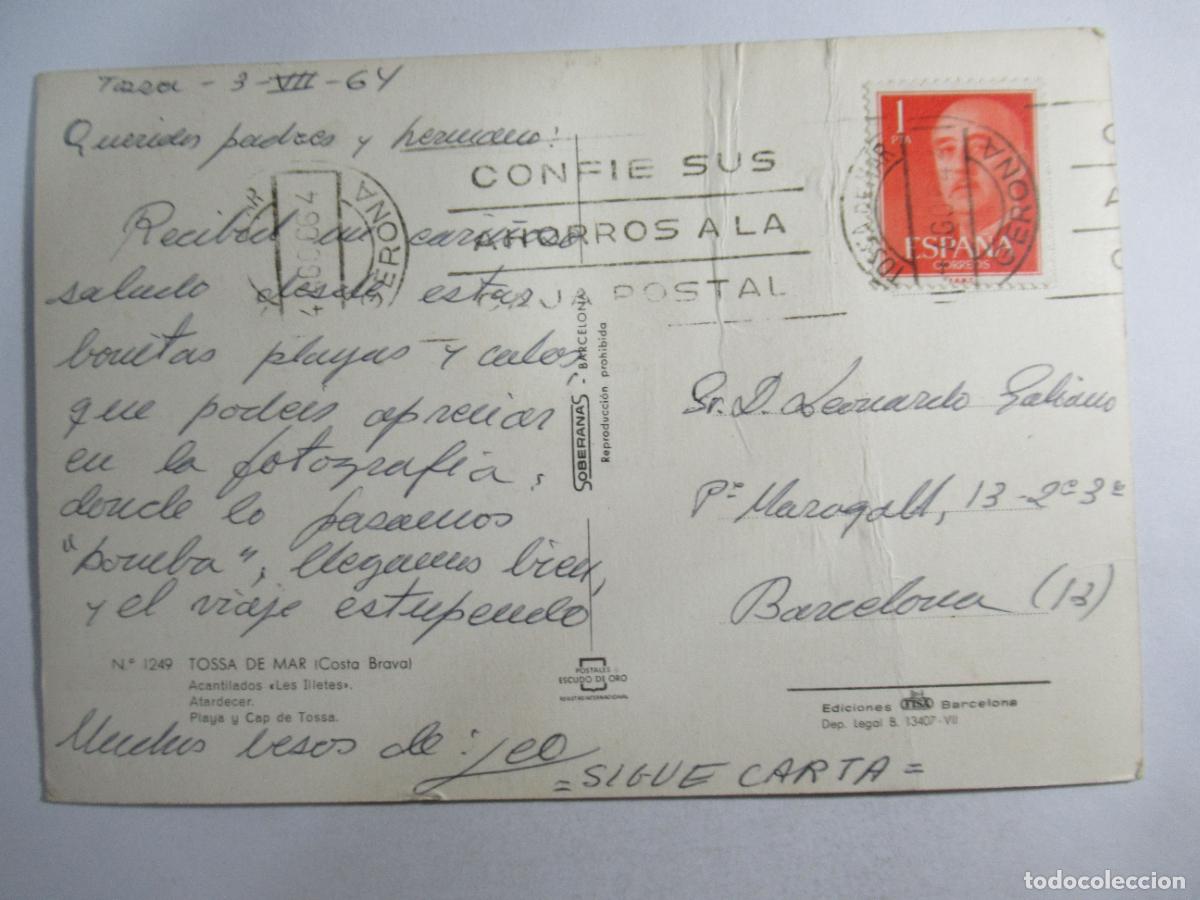 Tossa - 3-VII-64
Queridos padres y hermano:
Recibid mi cariñoso
saludo desde estas
bonitas playas y calas
que podeis apreciar
en la fotografia,
donde lo pasamos
"bomba", llegamos bien,
y el viaje estupendo
Nº 1249 TOSSA DE MAR (Costa Brava)
Acantilados «Les Illetes».
Atardecer.
Playa y Cap de Tossa.
Muchos besos de: Leo
= SIGUE CARTA =
SOBERANAS - BARCELONA
Reproducción prohibida
POSTALES
ESCUDO DE ORO
REGISTRO INTERNACIONAL
CONFIE SUS
AHORROS A LA
CAJA POSTAL
GERONA
1
PTA
ESPAÑA
CORREOS
F.N.M.T.
TOSSA DE MAR
GERONA
Sr. D. Leonardo Galiano
Pº Maragall, 13-2º 3ª
Barcelona (13)
Ediciones FISA Barcelona
Dep. Legal B. 13407-VII
todocoleccion